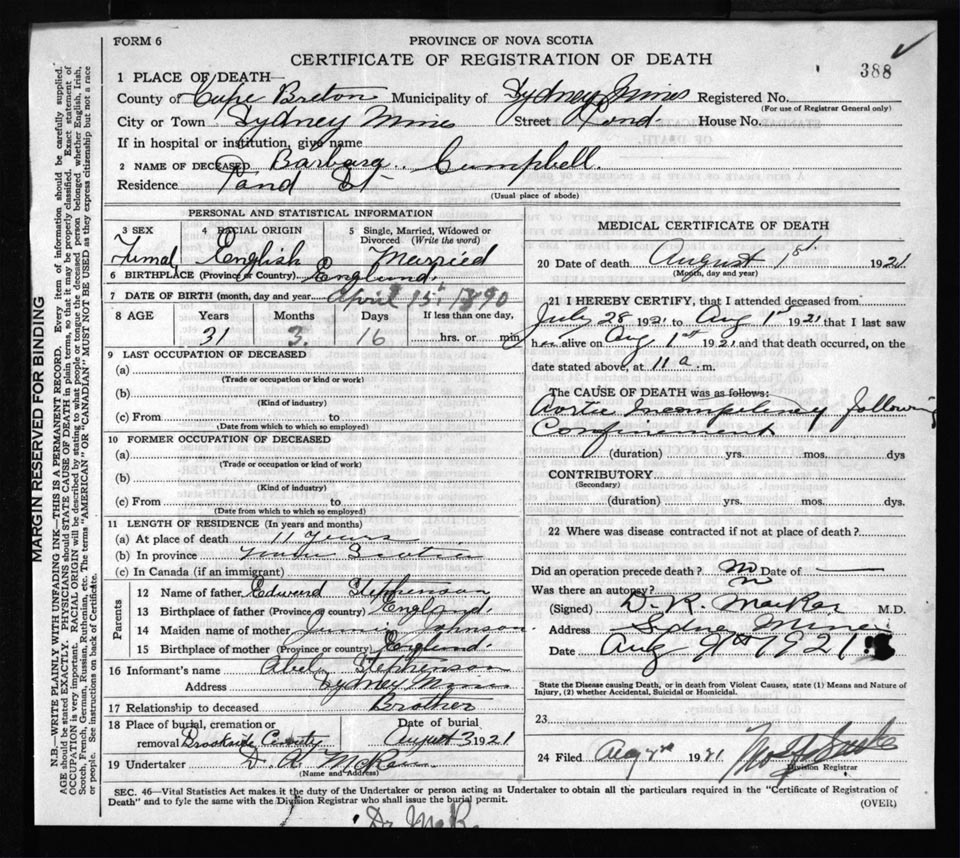 FORM 6
PROVINCE OF NOVA SCOTIA
CERTIFICATE OF REGISTRATION OF DEATH
388
1 PLACE OF DEATH—
County of Cape Breton Municipality of Sydney Mines Registered No.
(For use of Registrar General only)
City or Town Sydney Mines Street Pond House No.
If in hospital or institution, give name
2 NAME OF DECEASED Barbara Campbell.
Residence Pond St
(Usual place of abode)
PERSONAL AND STATISTICAL INFORMATION
3 SEX
Femal
4 RACIAL ORIGIN
English
5 Single, Married, Widowed or Divorced (Write the word)
Married
6 BIRTHPLACE (Province or Country) England.
7 DATE OF BIRTH (month, day and year April 15th 1890
8 AGE Years Months Days If less than one day,
31 3 16 hrs. or min
9 LAST OCCUPATION OF DECEASED
(a)
(Trade or occupation or kind or work)
(b)
(Kind of industry)
(c) From to
(Date from which to which so employed)
10 FORMER OCCUPATION OF DECEASED
(a)
(Trade or occupation or kind of work)
(b)
(Kind of industry)
(c) From to
(Date from which to which so employed)
11 LENGTH OF RESIDENCE (In years and months)
(a) At place of death 11 Years
(b) In province Nova Scotia
(c) In Canada (if an immigrant)
Parents
12 Name of father Edward Stephenson
13 Birthplace of father (Province or Country) England.
14 Maiden name of mother Johnson.
15 Birthplace of mother (Province or country) England
16 Informant's name Abel Stephenson
Address Sydney Mines
17 Relationship to deceased Brother
18 Place of burial, cremation or removal Brookside
Date of burial
August 3, 1921
19 Undertaker D. A.
(Name and Address)
MEDICAL CERTIFICATE OF DEATH
20 Date of death August 1st 1921
(Month, day and year)
21 I HEREBY CERTIFY, that I attended deceased from
July 28 1921 to Aug 1st 1921 that I last saw
her alive on Aug 1st 1921 and that death occurred, on the
date stated above, at 11 a.m.
The CAUSE OF DEATH was as follows:
Aortic Incompetency following
Confinement
(duration) yrs. mos. dys
CONTRIBUTORY
(Secondary)
(duration) yrs. mos. dys.
22 Where was disease contracted if not at place of death?
Did an operation precede death? No Date of —
Was there an autopsy? No
(Signed) D. R. M.D.
Address Sydney Mines
Date Aug 1921
State the Disease causing Death, or in death from Violent Causes, state (1) Means and Nature of
Injury, (2) whether Accidental, Suicidal or Homicidal.
23
24 Filed Aug 1921
Division Registrar
SEC. 46—Vital Statistics Act makes it the duty of the Undertaker or person acting as Undertaker to obtain all the particulars required in the "Certificate of Registration of
Death" and to fyle the same with the Division Registrar who shall issue the burial permit.
(OVER)
Dr
MARGIN RESERVED FOR BINDING
N.B.—WRITE PLAINLY WITH UNFADING INK—THIS IS A PERMANENT RECORD. Every item of information should be carefully supplied.
AGE should be stated EXACTLY. PHYSICIANS should STATE CAUSE OF DEATH in plain terms, so that it may be properly classified. Exact statement of
OCCUPATION is very important. RACIAL ORIGIN will be described by stating to what people or tongue the deceased person belonged whether English, Irish,
Scotch, French, German, Russian, Ruthenian, etc. The terms "AMERICAN" OR "CANADIAN" MUST NOT BE USED as they express citizenship but not a race
or people. See instructions on back of Certificate.